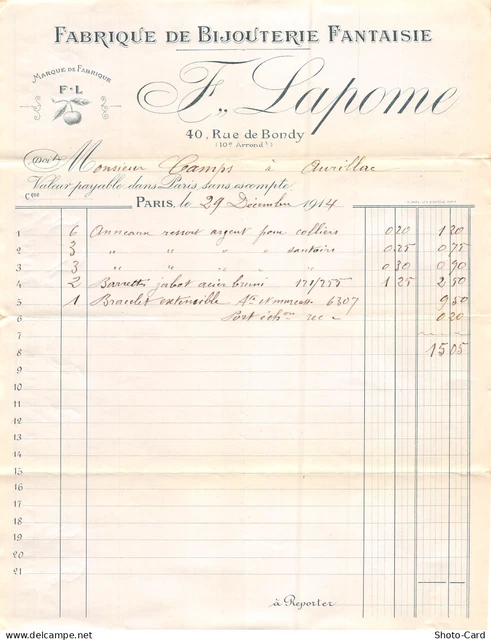 FABRIQUE DE BIJOUTERIE FANTAISIE
MARQUE DE FABRIQUE
F·L
F. Lapome
40, Rue de Bondy
(10e Arrondt)
Doit Monsieur Camps à Aurillac
Valeur payable dans Paris, sans escompte.
PARIS, le 29 Décembre 1914
1 6 Anneaux ressort argent pour colliers 0 20 1 20
2 3 " " " " sautoirs 0.25 0 75
3 3 " " " " " 0 30 0 90
4 2 Barrettes jabot acier bruni 171/255 1 25 2 50
5 1 Bracelet extensible 6307 9 50
6 Port 0 20
7
8 15 05
9
10
11
12
13
14
15
16
17
18
19
20
21
à Reporter
delcampe.net
Photo-Card